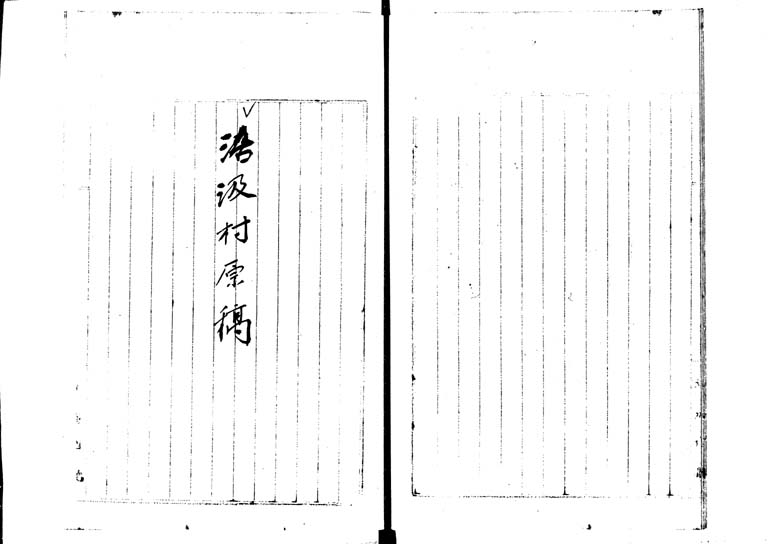 活汲村原稿